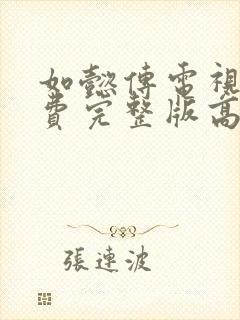 如懿傳電視
費完整版高
張連波